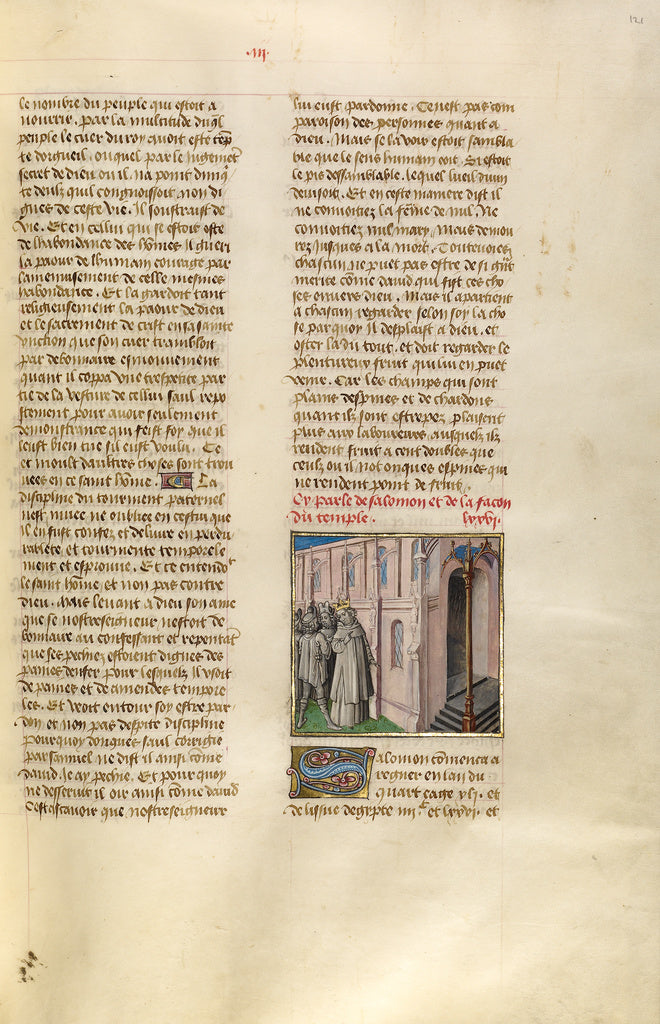 121
.III.
le nombre du peuple qui estoit a
nourrir. par la multitude duql
peuple le cuer du roy auoit este
te dorgueil. ouquel par le Jugemet
secret de dieu ou il na point
te deulx quil congnoissoit non di
gnes de ceste vie. Il soustrait de
vie. Et en cellui qui se estoit este
de lhabondance des hões Il gueri
la paour de lhumain courage par
lamenuisement de celle mesmes
habondance. Et la gardoit tant
religieusement la paour de dieu
et le sacrement de crist en sa sainte
vnction que son cuer trambloit
par debonnaire esmouuement
quant il coppa vne trespetite par
tie de la vesture de cellui saul repo
stement pour auoir seulement
demonstrance qui feist foy que il
leust bien tue sil eust voulu. Ce
et moult daultres choses sont trou
uees en ce saint hõme. La
discipline du tourment paternel
nest muee ne oubliee en cestui que
il en fust confez et deliure en perdu
rablete et tourmente temporele
ment et esprouue. Et ce entendo
le saint hõme et non pas contre
dieu. Mais leuant a dieu son ame
que se nostreseigneur nestoit de
bonnaire au confessant et repentat
que ses pechiez estoient dignes des
paines denfer pour lesquelz Il vsoit
de paines et de amendes tempore
les. Et veoit entour soy estre par
don et non pas despite discipline
Pourquoy donques saul corrigie
par samuel ne dist il ainsi cõme
dauid Je ay pechie. Et pour quoy
ne desseruit il oir ainsi cõme dauid
Cest assauoir que nostreseigneur
lui eust pardonne. Ce nest pas com
paroison des personnes quant a
dieu. Mais se la voir estoit sambla
ble que le sens humain oit. Si estoit
le pis dessamblable. lequel lueil diuin
deuisoit. Et en ceste maniere dist il
ne conuoitiez la fẽme de nul. Ne
conuoitiez nul mary. Mais demou
rez Jusques a la mort. Touteuoies
chascun ne puet pas estre de si gnt
merite cõme dauid qui fist ces cho
ses enuers dieu. Mais il apartient
a chascun regarder selon soy la cho
se par quoy Il desplaist a dieu. et
oster la du tout. et doit regarder le
plentureux fruit qui lui en puet
venir. Car les champs qui sont
plains despines et de chardons
quant ilz sont estrepez plaisent
plus aux laboureurs ausquelz ilz
rendent fruit a cent doubles que
ceulx ou il not onques espines qui
ne rendent point de fruit.
Cy parle de salomon et de la facon
du temple. lxxvi.
Salomon cõmenca a
regner en lan du
quart eage vli. et
de lissue degypte iiii. c et lxxvi. et